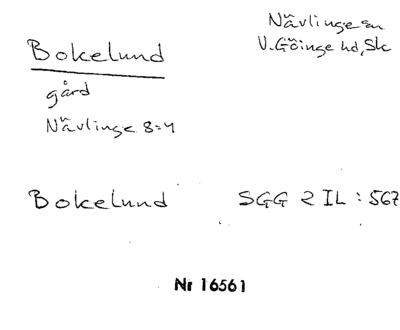 Nävlinge sn
Bokelund
V. Göinge hd, Sk
gård
Nävlinge 8:4
Bokelund SGG 2 IL : 567
Nr 16561